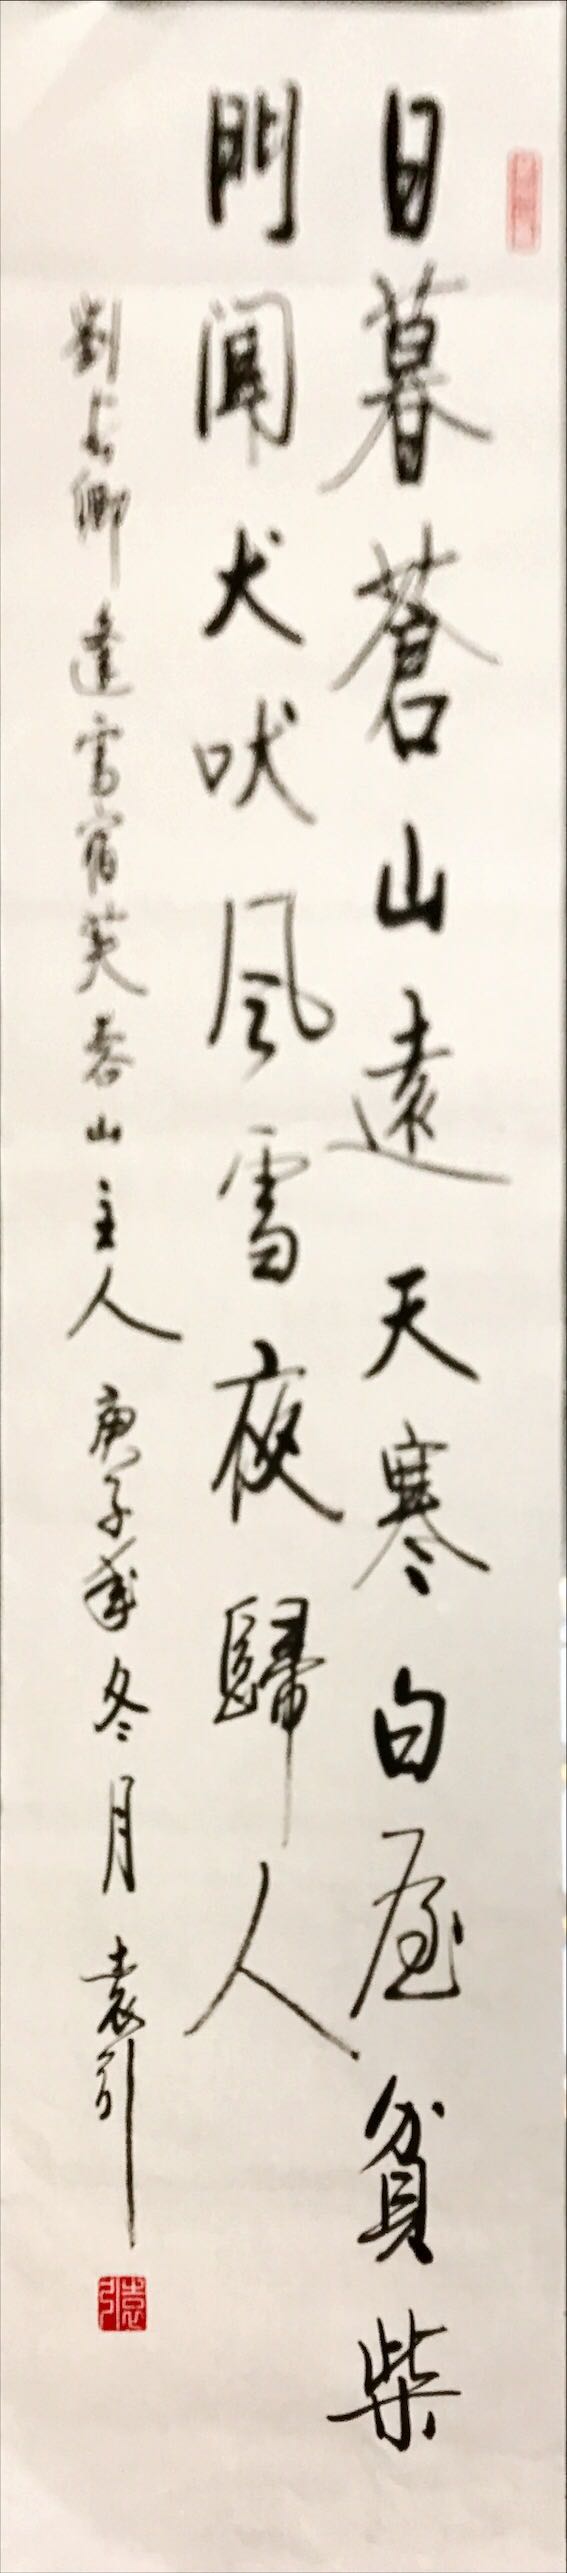 日暮蒼山遠天寒白屋貧柴
門聞犬吠風雪夜歸人
劉長卿逢雪宿芙蓉山主人 庚子年冬月 袁引